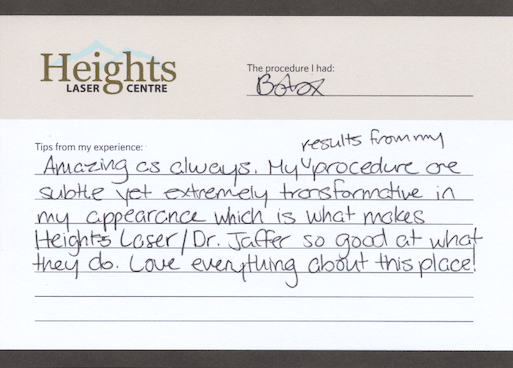 Heights
LASER CENTRE
The procedure I had:
Botox
Tips from my experience:
results from my
Amazing as always. My ^ procedure are
subtle yet extremely transformative in
my appearance which is what makes
Heights Laser/Dr. Jaffer so good at what
they do. Love everything about this place!